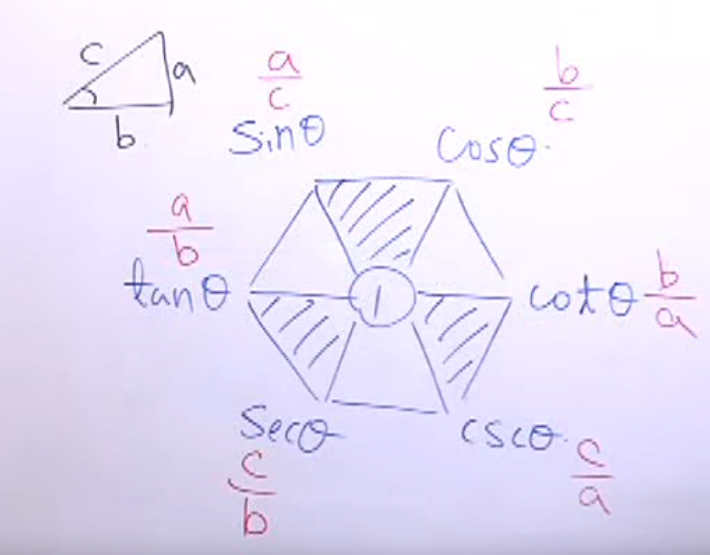 c
a
b
a/c
b/c
sinθ
cosθ
a/b
tanθ
1
cotθ b/a
secθ
cscθ
c/b
c/a